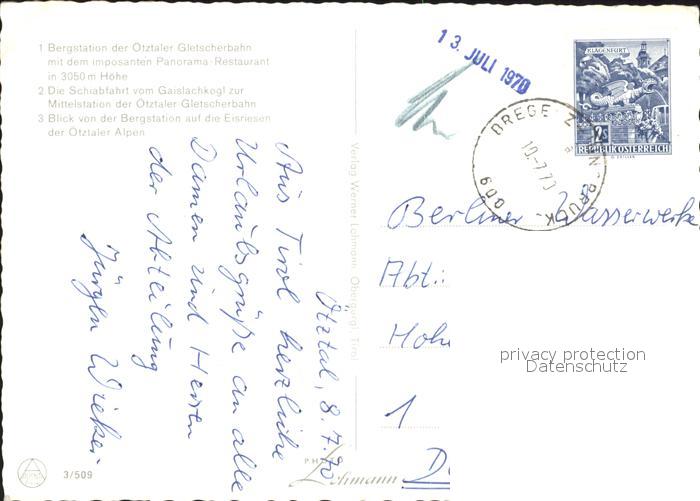 1 Bergstation der Ötztaler Gletscherbahn
mit dem imposanten Panorama-Restaurant
in 3050 m Höhe
2 Die Schiabfahrt vom Gaislachkogl zur
Mittelstation der Ötztaler Gletscherbahn
3 Blick von der Bergstation auf die Eisriesen
der Ötztaler Alpen
Ötztal, 8.7.70
Aus Tirol herzliche
Urlaubsgrüße an alle
Damen und Herren
der Abteilung
Jürgen
Verlag Werner Lohmann, Obergurgl, Tirol
13. JULI 1970
KLAGENFURT
2s
REPUBLIK ÖSTERREICH
BREGENZ
10.-7.70
600
Berliner-Wasserwerke
Abt.:
Hoh
1
privacy protection
Datenschutz
PHOTO
Lohmann
3/509